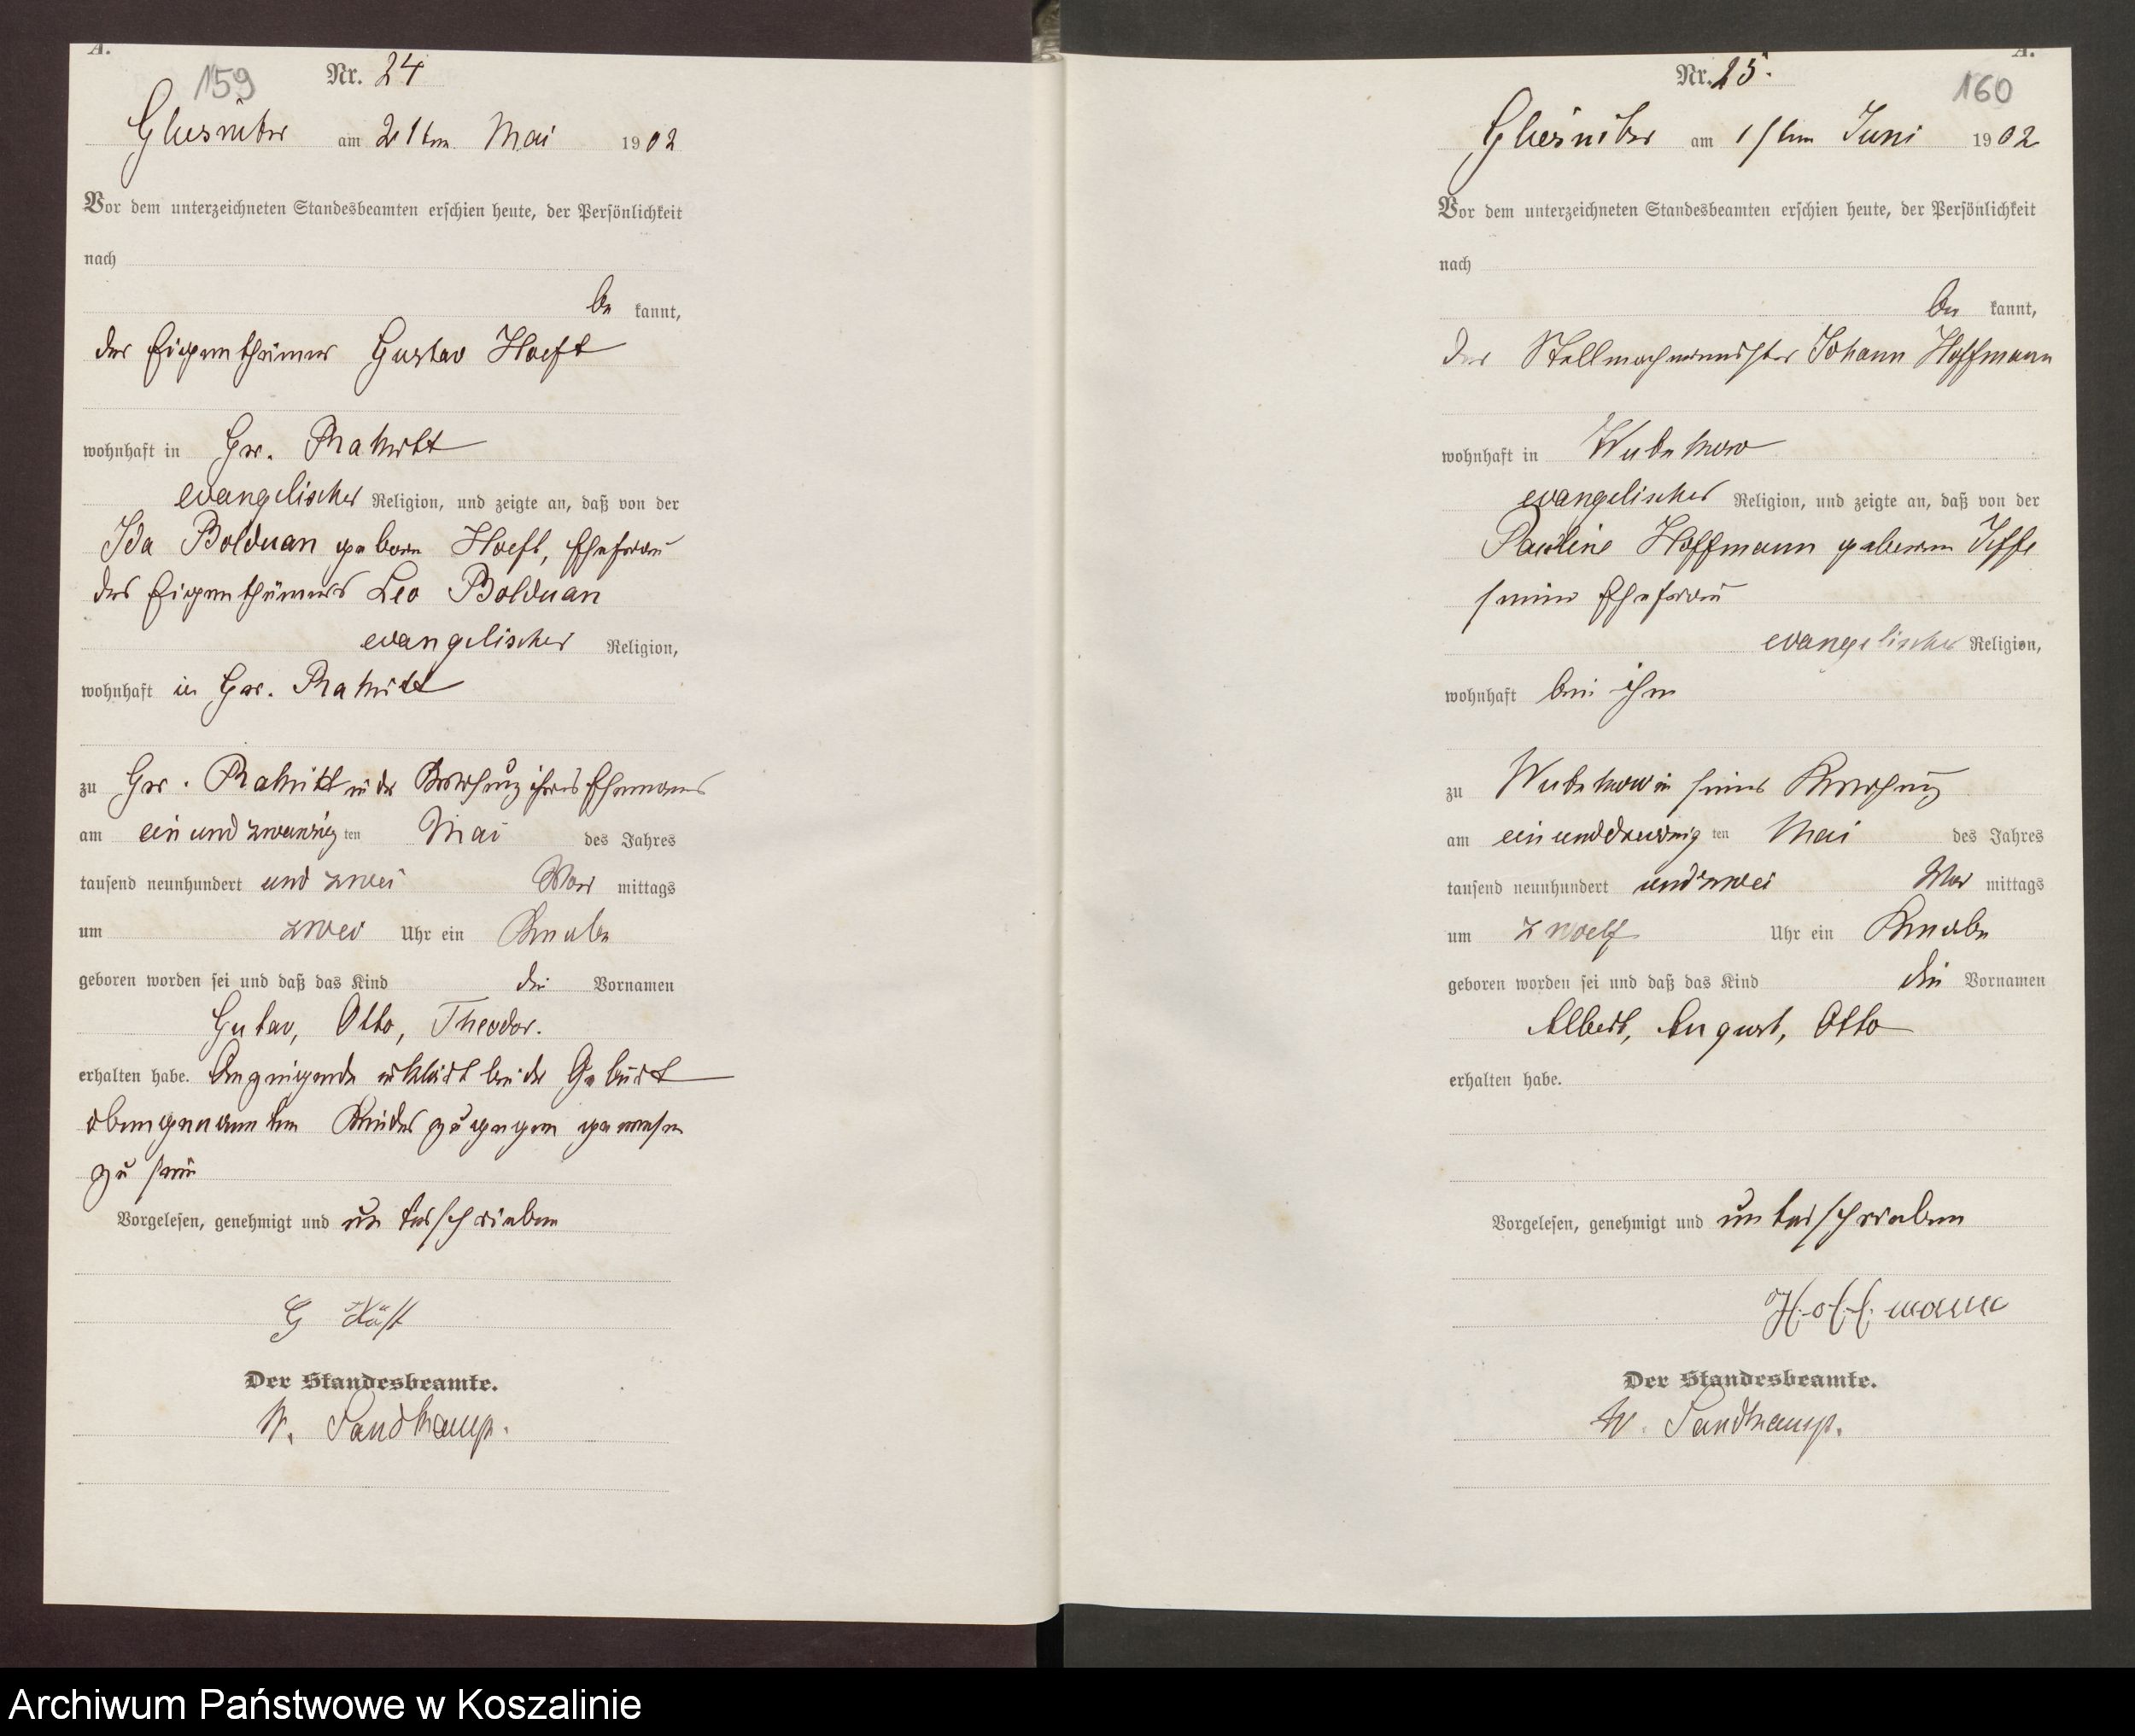 A.
159
Nr. 24
Gliesnitz am 21ten Mai 1902
Vor dem unterzeichneten Standesbeamten erschien heute, der Persönlichkeit
nach
be kannt,
der Eigenthümer Gustav Hoeft
wohnhaft in Gr. Rakitt
evangelischer Religion, und zeigte an, daß von der
Ida Bolduan geborn Hoeft, Ehefrau
des Eigenthümers Leo Bolduan
evangelischer Religion,
wohnhaft in Gr. Rakitt
zu Gr. Rakitt in der Behausung ihres Ehemanns
am ein und zwanzig ten Mai des Jahres
tausend neunhundert und zwei Vor mittags
um zwei Uhr ein Knabe
geboren worden sei und daß das Kind die Vornamen
Gutav, Otto, Theodor.
erhalten habe. Anzeigende erklärt bei der Geburt
obengenannten Kindes zugegen gewesen
zu sein
Vorgelesen, genehmigt und unterschrieben
G Häft
Der Standesbeamte.
W. Sandkamp.
A.
Nr. 25.
160
Gliesnitz am 1sten Juni 1902
Vor dem unterzeichneten Standesbeamten erschien heute, der Persönlichkeit
nach
be kannt,
der Stellmachermeister Johann Hoffmann
wohnhaft in Wutzkow
evangelischer Religion, und zeigte an, daß von der
Pauline Hoffmann geboren
seiner Ehefrau
evangelischer Religion,
wohnhaft bei ihm
zu Wutzkow in seiner Behausung
am einunddreißig ten Mai des Jahres
tausend neunhundert und zwei Vor mittags
um zwoelf Uhr ein Knabe
geboren worden sei und daß das Kind die Vornamen
Albert, August, Otto
erhalten habe.
Vorgelesen, genehmigt und unterschrieben
Hoffmann
Der Standesbeamte.
W. Sandkamp.
Archiwum Państwowe w Koszalinie